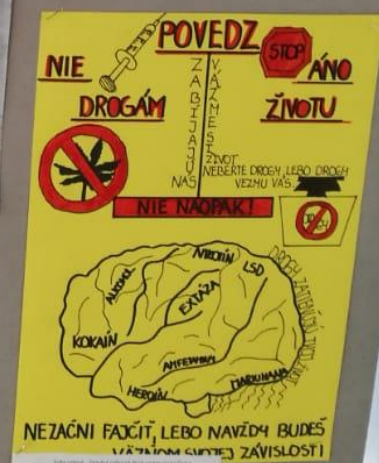 POVEDZ
STOP
NIE
ÁNO
DROGÁM
ŽIVOTU
ZABÍJAJÚ
NÁS
VÁŽME SI
ŽIVOT
NEBERTE DROGY, LEBO DROGY
VEZMÚ VÁS.
NIE NAOPAK!
DROGY
ALKOHOL
NIKOTÍN
LSD
EXTÁZA
KOKAÍN
AMFETAMÍNY
HEROÍN
MARIHUANA
DROGY
NEZAČNI FAJČIŤ, LEBO NAVŽDY BUDEŠ
VÄZŇOM SVOJEJ ZÁVISLOSTI